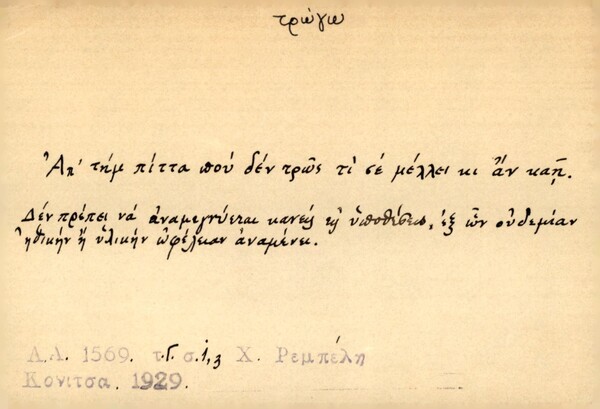 τρώγω
Ἀπ' τὴμ πίττα πού δέν τρῶς τί σέ μέλλει κι ἄν καῇ.
Δέν πρέπει νά ἀναμιγνύεται κανείς εἰς ὑποθέσεις, ἐξ ὧν οὐδεμίαν
ἠθικήν ἤ ὑλικήν ὠφέλειαν ἀναμένει.
Λ.Α. 1569. τ.Γ. σ. 1,3 Χ. Ρεμπέλη
Κονιτσα. 1929.